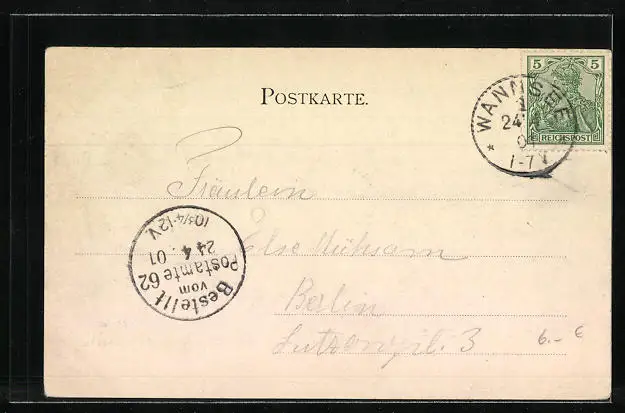 POSTKARTE.
5 5
REICHSPOST
WANNSEE
24
1-7V
*
Fräulein
Else Mühsam
Berlin
3
Bestellt
vom
Postamte 62
24.4.01
10¾-12V.
6.- €